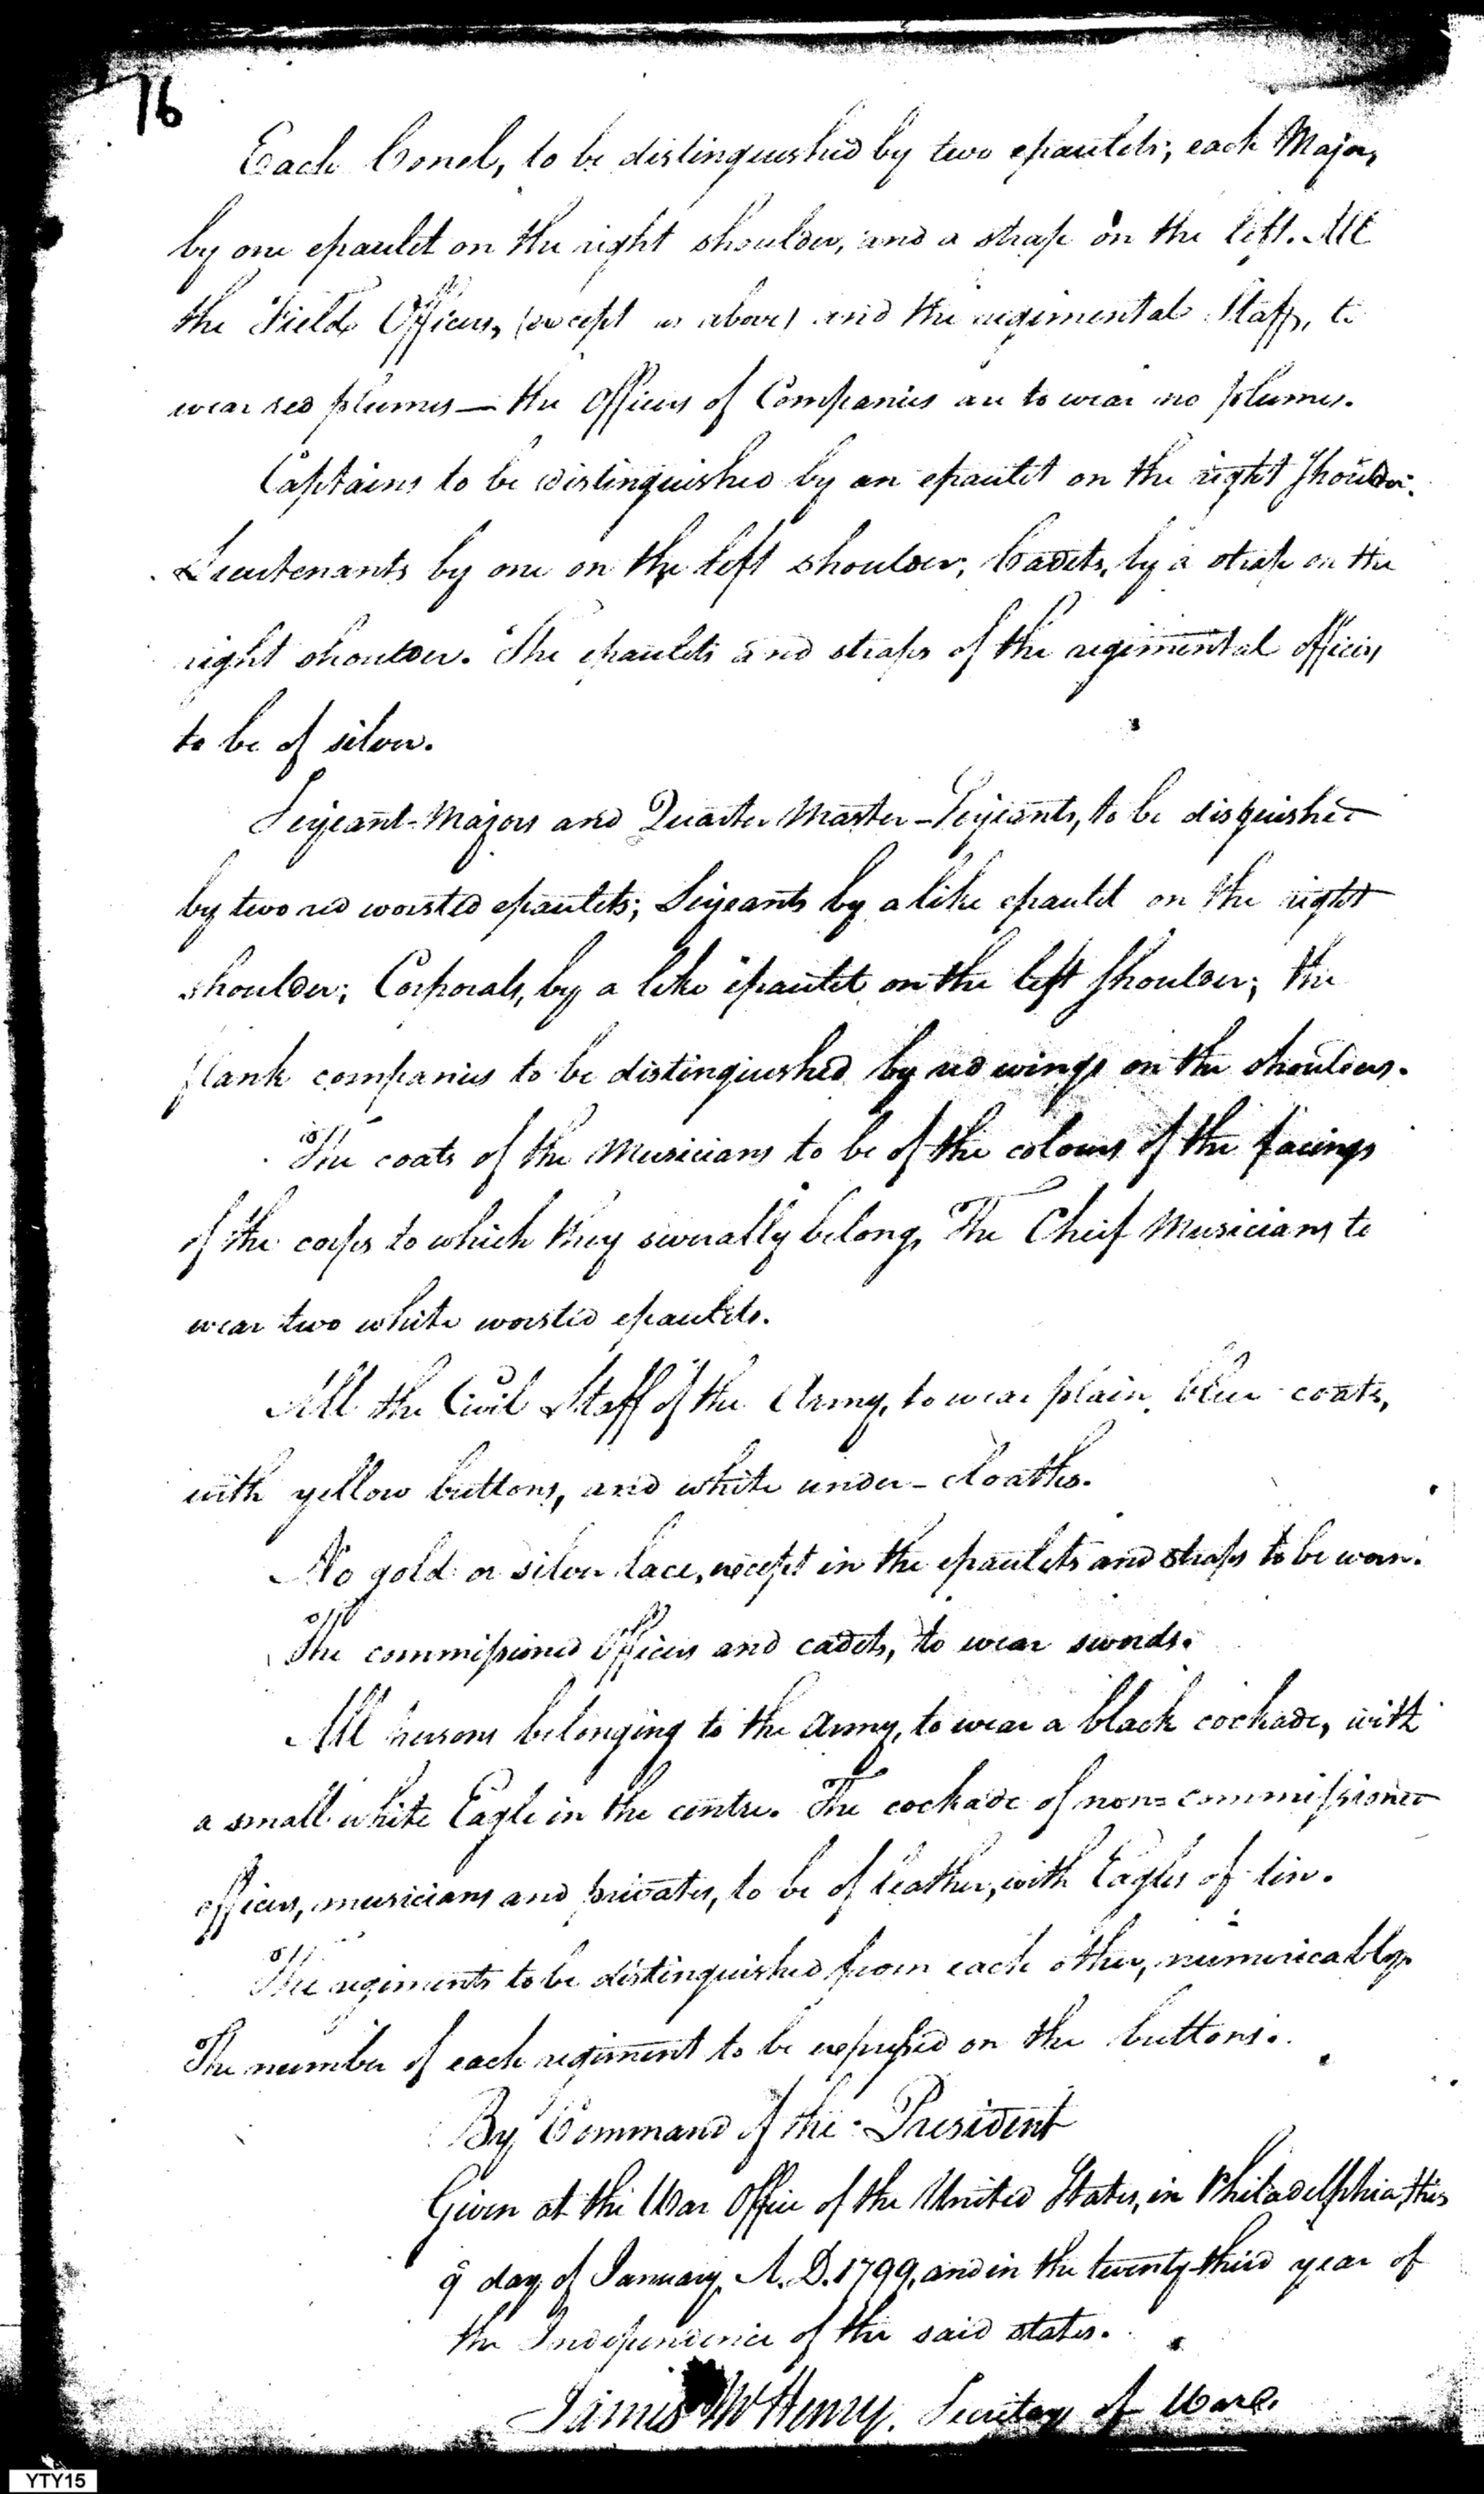 16
Each Conel, to be distinguished by two epaulets; each Major,
by one epaulet on the right shoulder, and a strap on the left. All
the Field Officers, (except as above) and the regimental Staff, to
wear red plumes — the Officers of Companies are to wear no plumes.
Captains to be distinguished by an epaulet on the right shoulder.
Lieutenants by one on the left shoulder; Cadets, by a strap on the
right shoulder. The epaulets and straps of the regimental officers
to be of silver.
Serjeant-Majors and Quarter Master-Serjeants, to be disguished
by two red worsted epaulets; Serjeants by a like epaulet on the right
shoulder; Corporals, by a like epaulet on the left shoulder; the
flank companies to be distinguished by red wings on the shoulders.
The coats of the Musicians to be of the colours of the facings
of the corps to which they severally belong, The Cheif Musicians to
wear two white worsted epaulets.
All the Civil Staff of the Army, to wear plain blue coats,
with yellow buttons, and white under-cloathes.
No gold or silver lace, except in the epaulets and straps to be worn.
The commissioned Officers and cadets, to wear swords.
All persons belonging to the Army, to wear a black cockade, with
a small white Eagle in the centre. The cockade of non=commissioned
officers, musicians and privates, to be of leather, with Eagles of tin.
The regiments to be distinguished from each other, numerically.
The number of each regiment to be expressed on the buttons.
By Command of the President
Given at the War Office of the United States, in Philadelphia, this
9 day of January, A. D. 1799, and in the twenty-third year of
the Independence of the said states.
James McHenry. Secretary of War.
YTY15